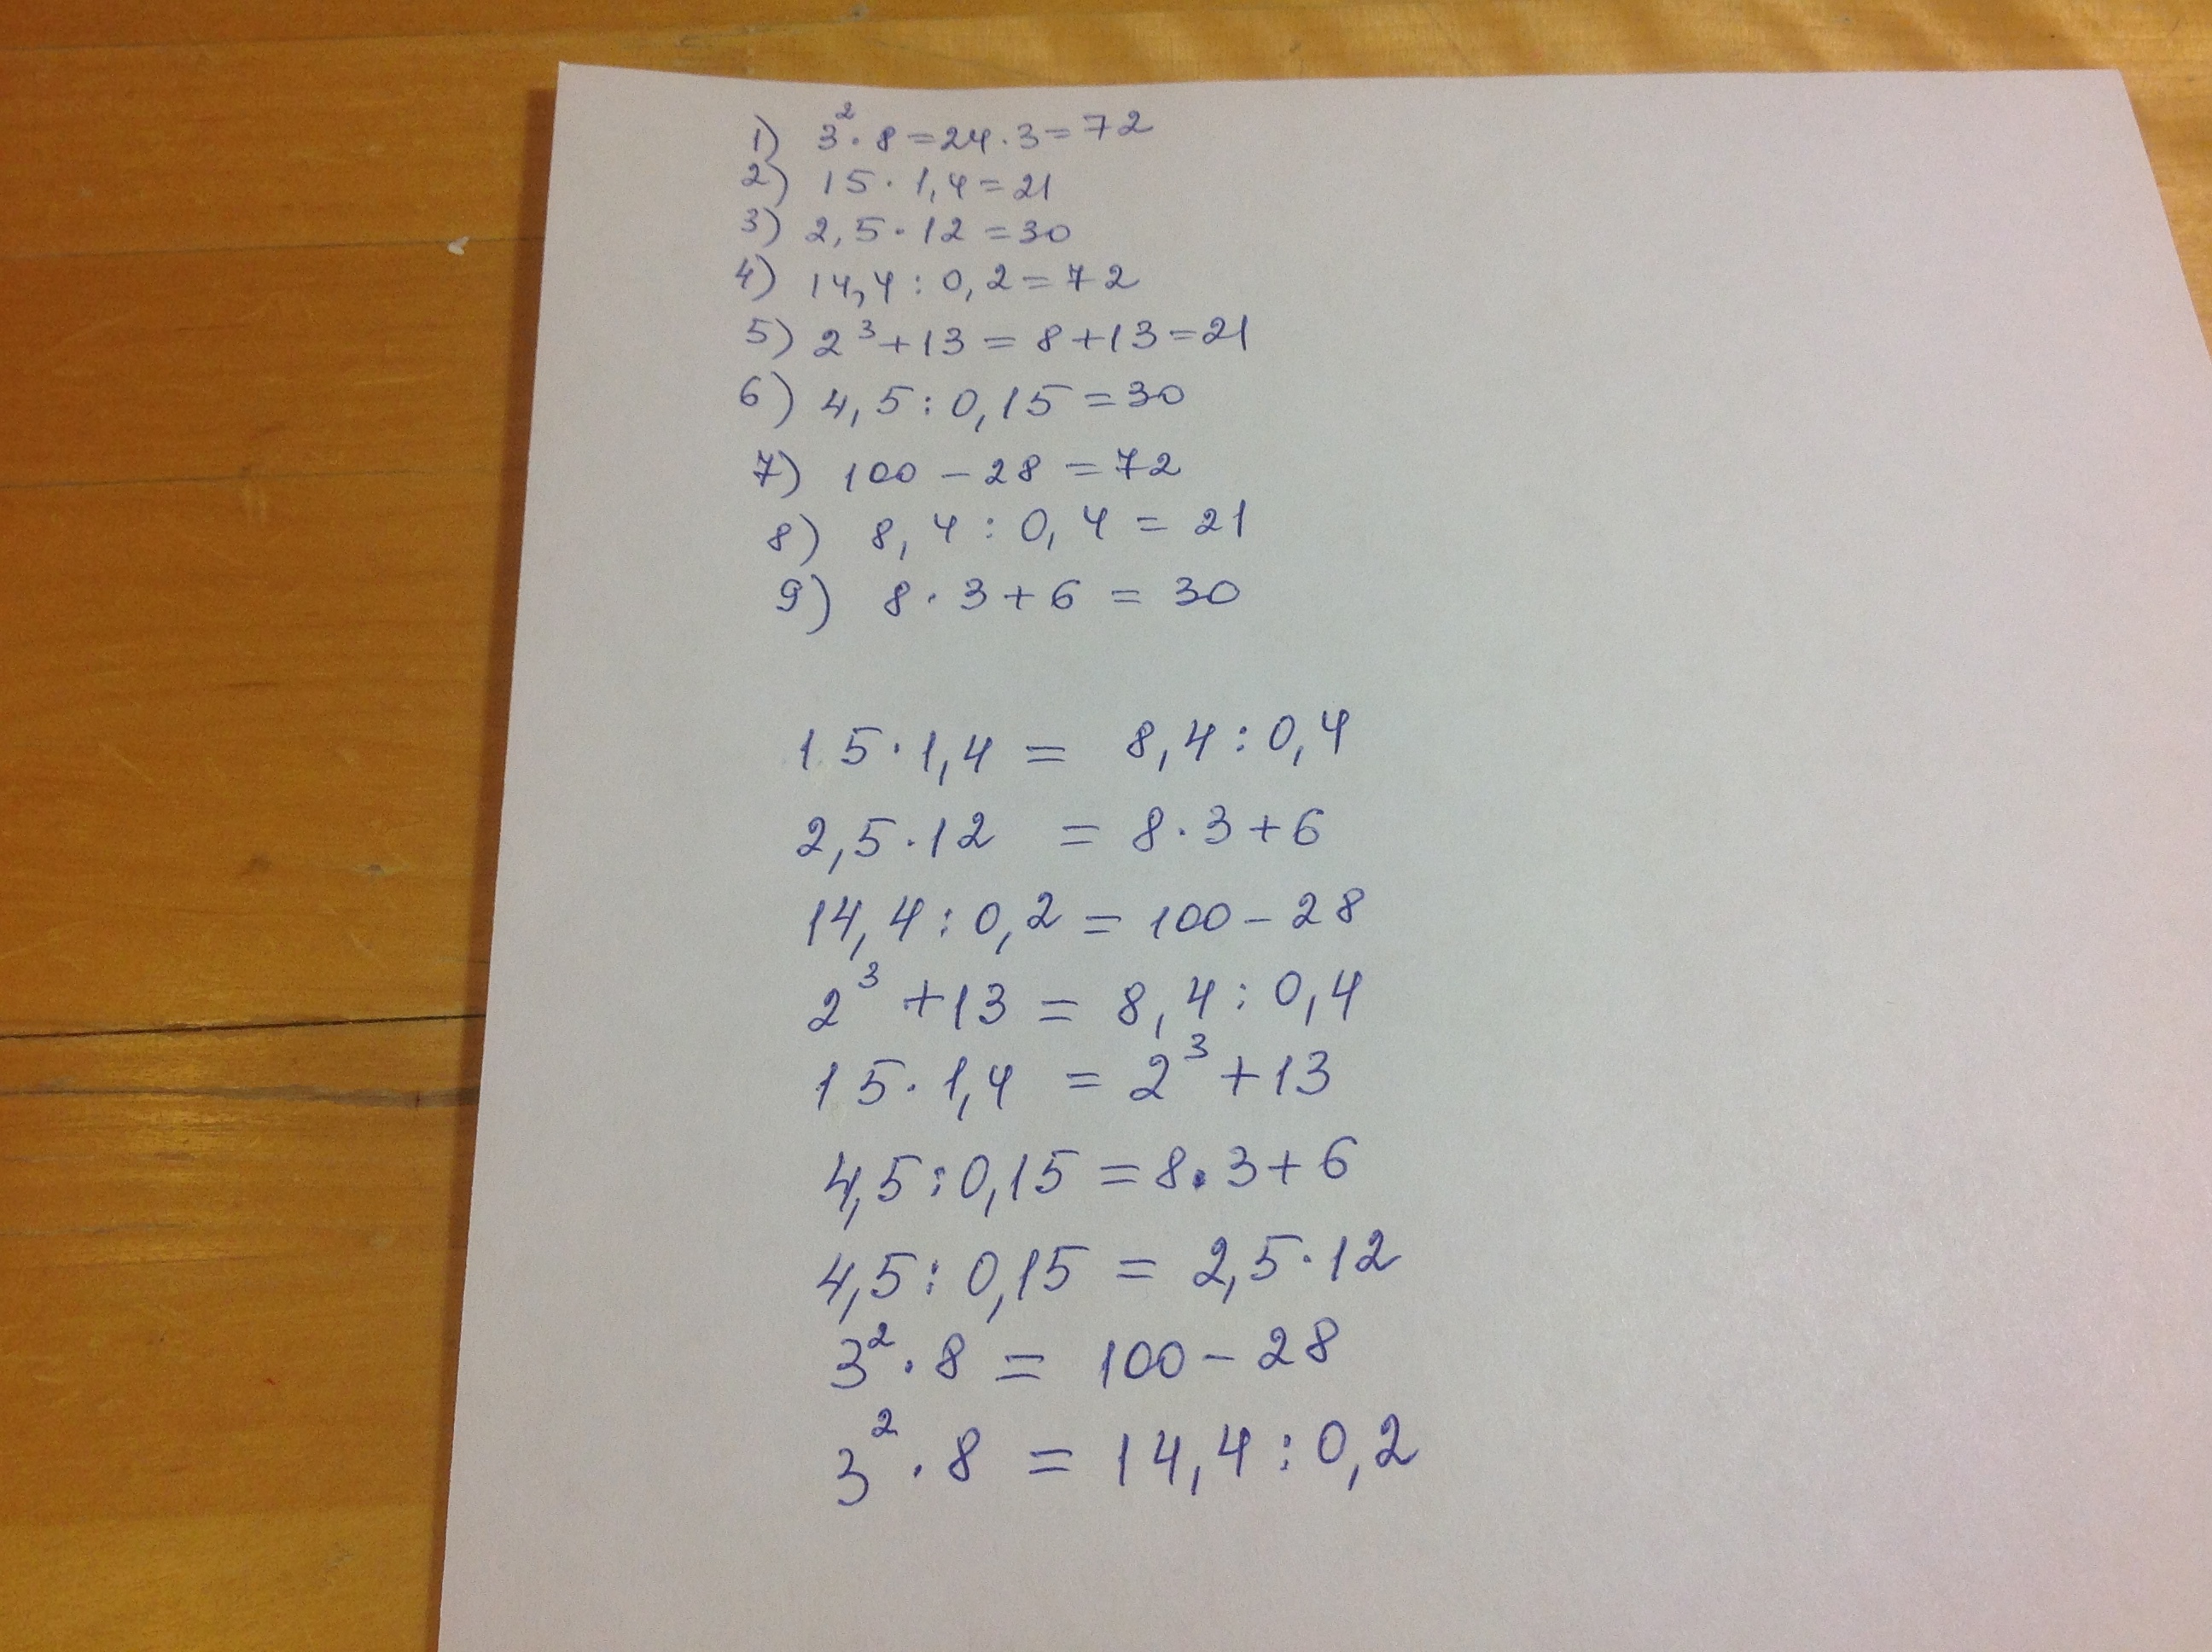 1) 3²·8=24·3=72
2) 15·1,4=21
3) 2,5·12=30
4) 14,4:0,2=72
5) 2³+13=8+13=21
6) 4,5:0,15=30
7) 100-28=72
8) 8,4:0,4=21
9) 8·3+6=30
15·1,4=8,4:0,4
2,5·12=8·3+6
14,4:0,2=100-28
2³+13=8,4:0,4
15·1,4=2³+13
4,5:0,15=8·3+6
4,5:0,15=2,5·12
3²·8=100-28
3²·8=14,4:0,2